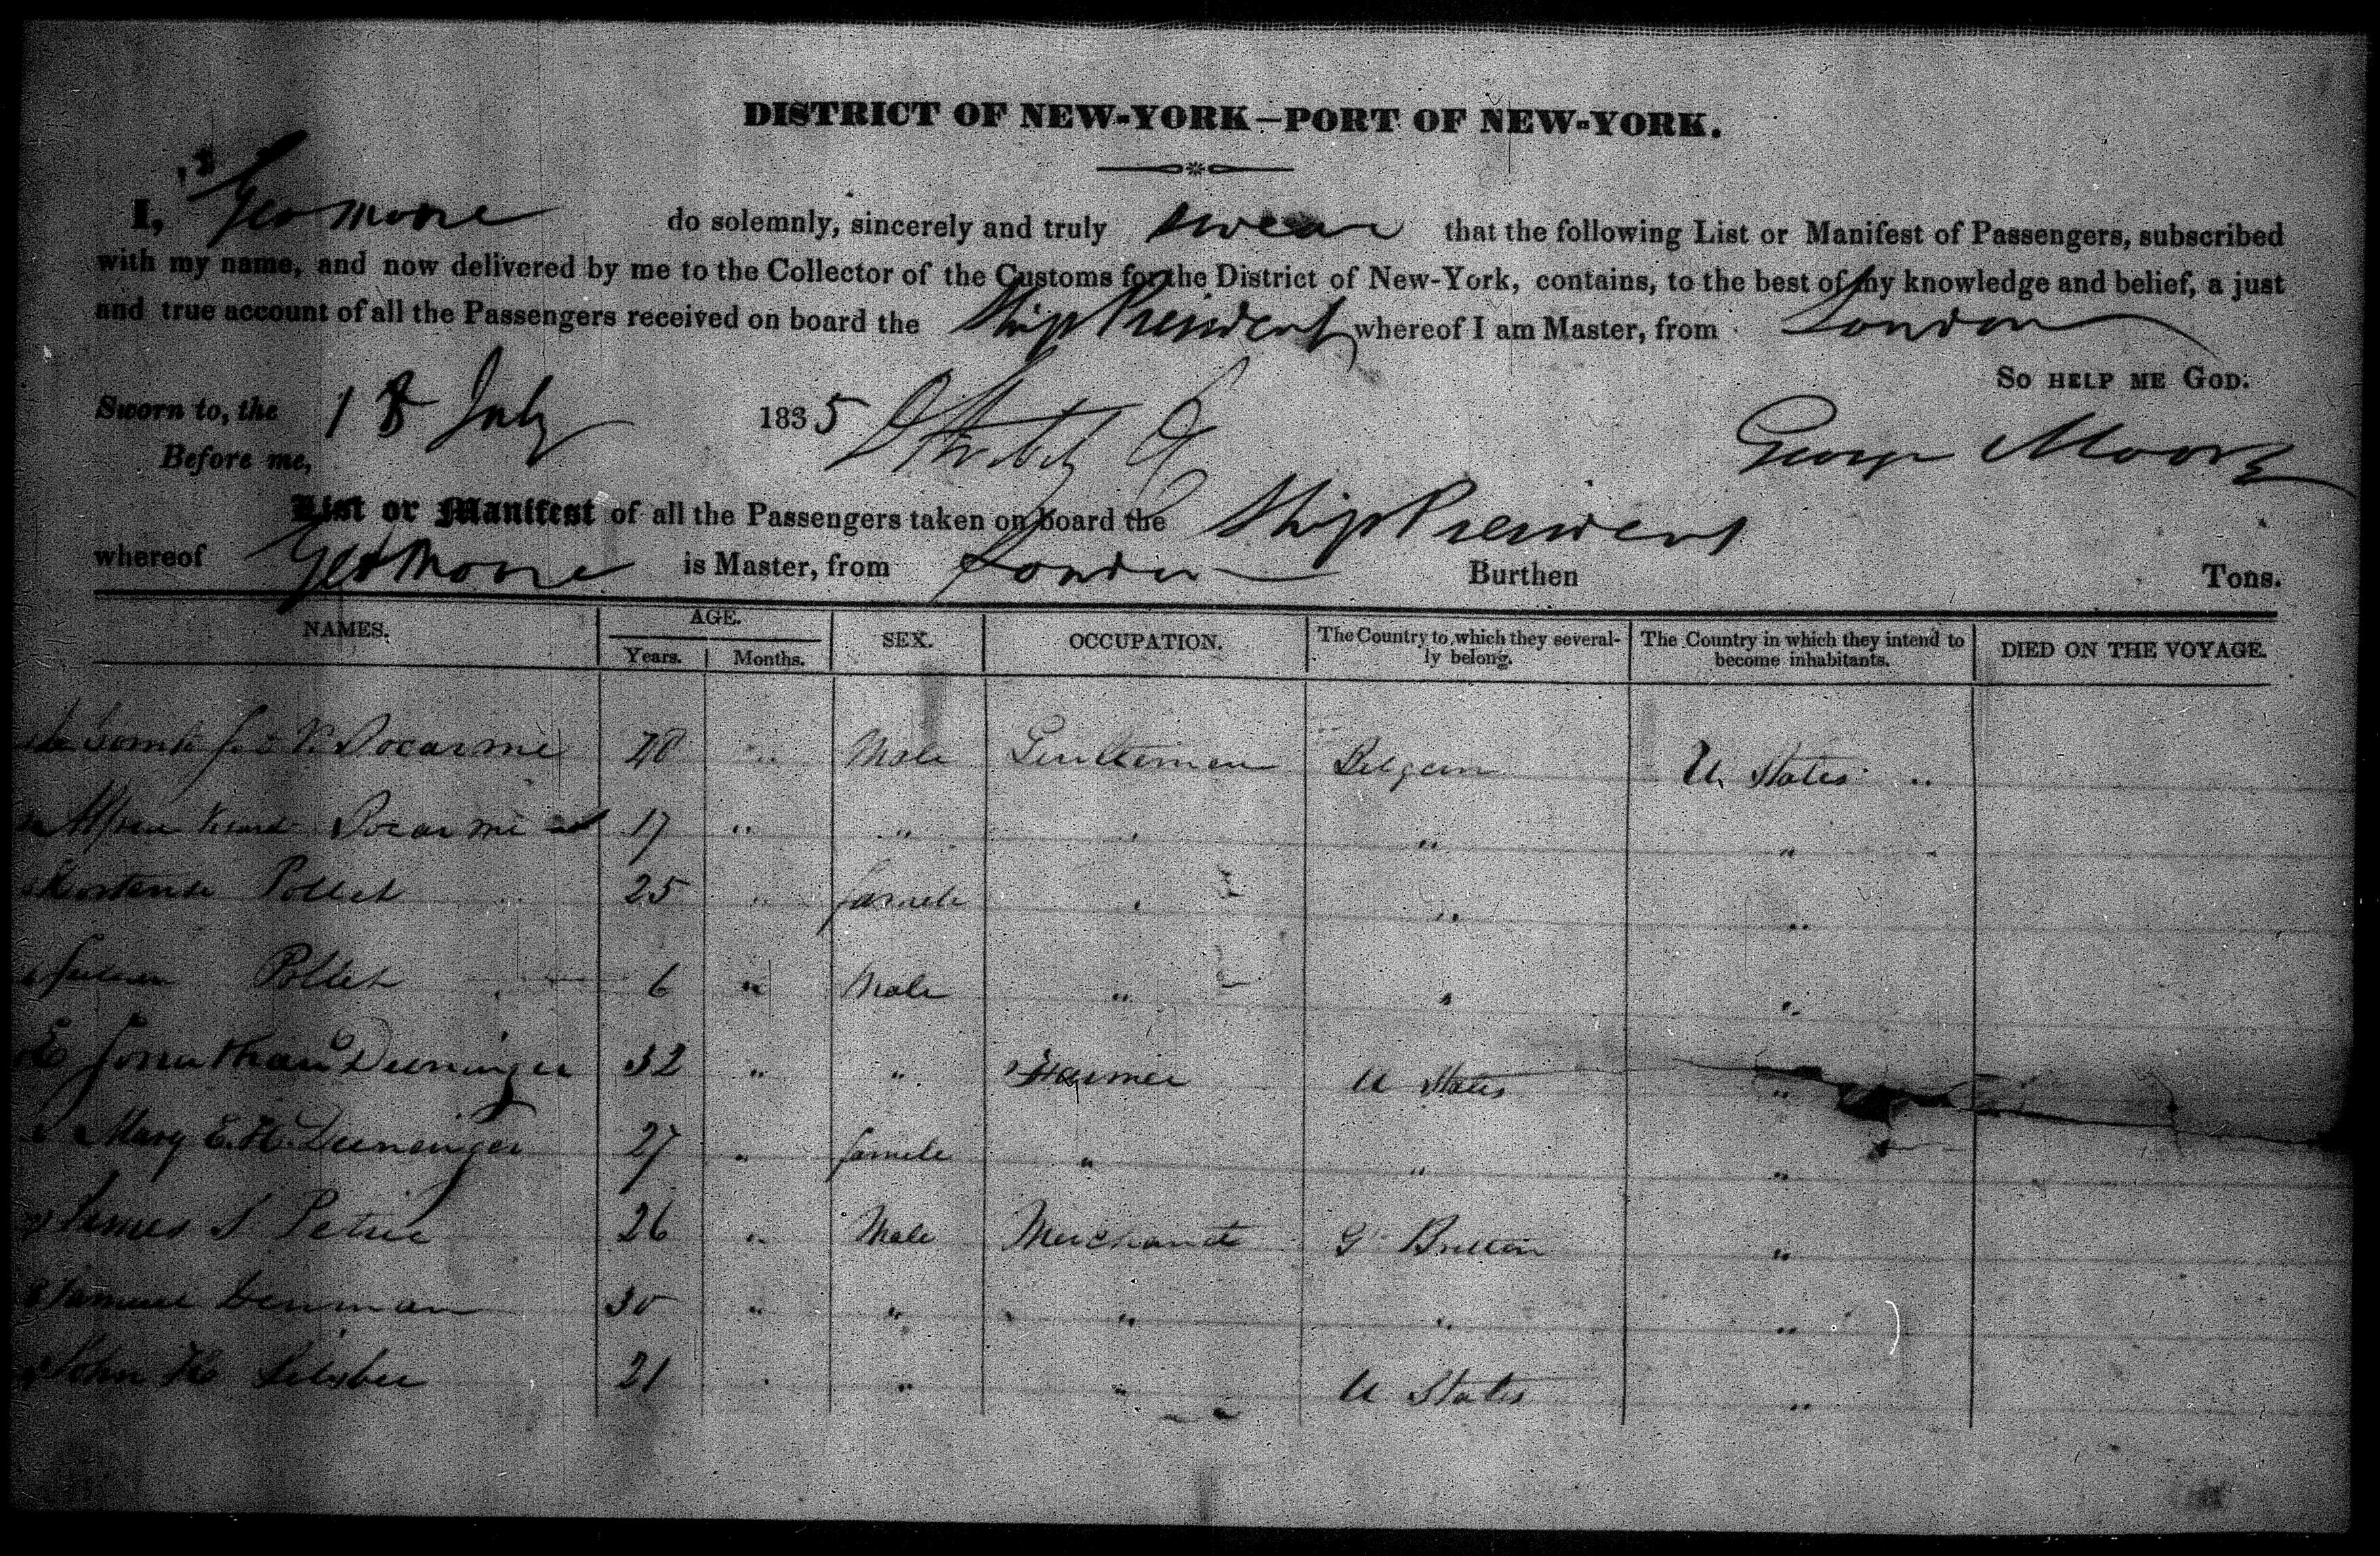 DISTRICT OF NEW-YORK—PORT OF NEW-YORK.
I, Geo Moore do solemnly, sincerely and truly swear that the following List or Manifest of Passengers, subscribed
with my name, and now delivered by me to the Collector of the Customs for the District of New-York, contains, to the best of my knowledge and belief, a just
and true account of all the Passengers received on board the Ship President whereof I am Master, from London
So HELP ME GOD.
Sworn to, the 18 July 1835
George Moore
Before me,
List or Manifest of all the Passengers taken on board the Ship President
whereof Geo Moore is Master, from London Burthen Tons.
NAMES. AGE. SEX. OCCUPATION. The Country to which they several- The Country in which they intend to DIED ON THE VOYAGE.
Years. Months. ly belong. become inhabitants.
Docarme 48 " Male Gentleman Belgium U States "
Docarme 17 " " " " "
Hortense Pollet 25 " female " " "
Pollet 6 " Male " " "
Jonathan Deininger 32 " " Farmer U States "
Mary E. H. Deininger 27 " female " " "
James S Petrie 26 " Male Merchant G Brittain "
Samuel Denman 30 " " " " "
John H Silsbee 21 " " " U States "